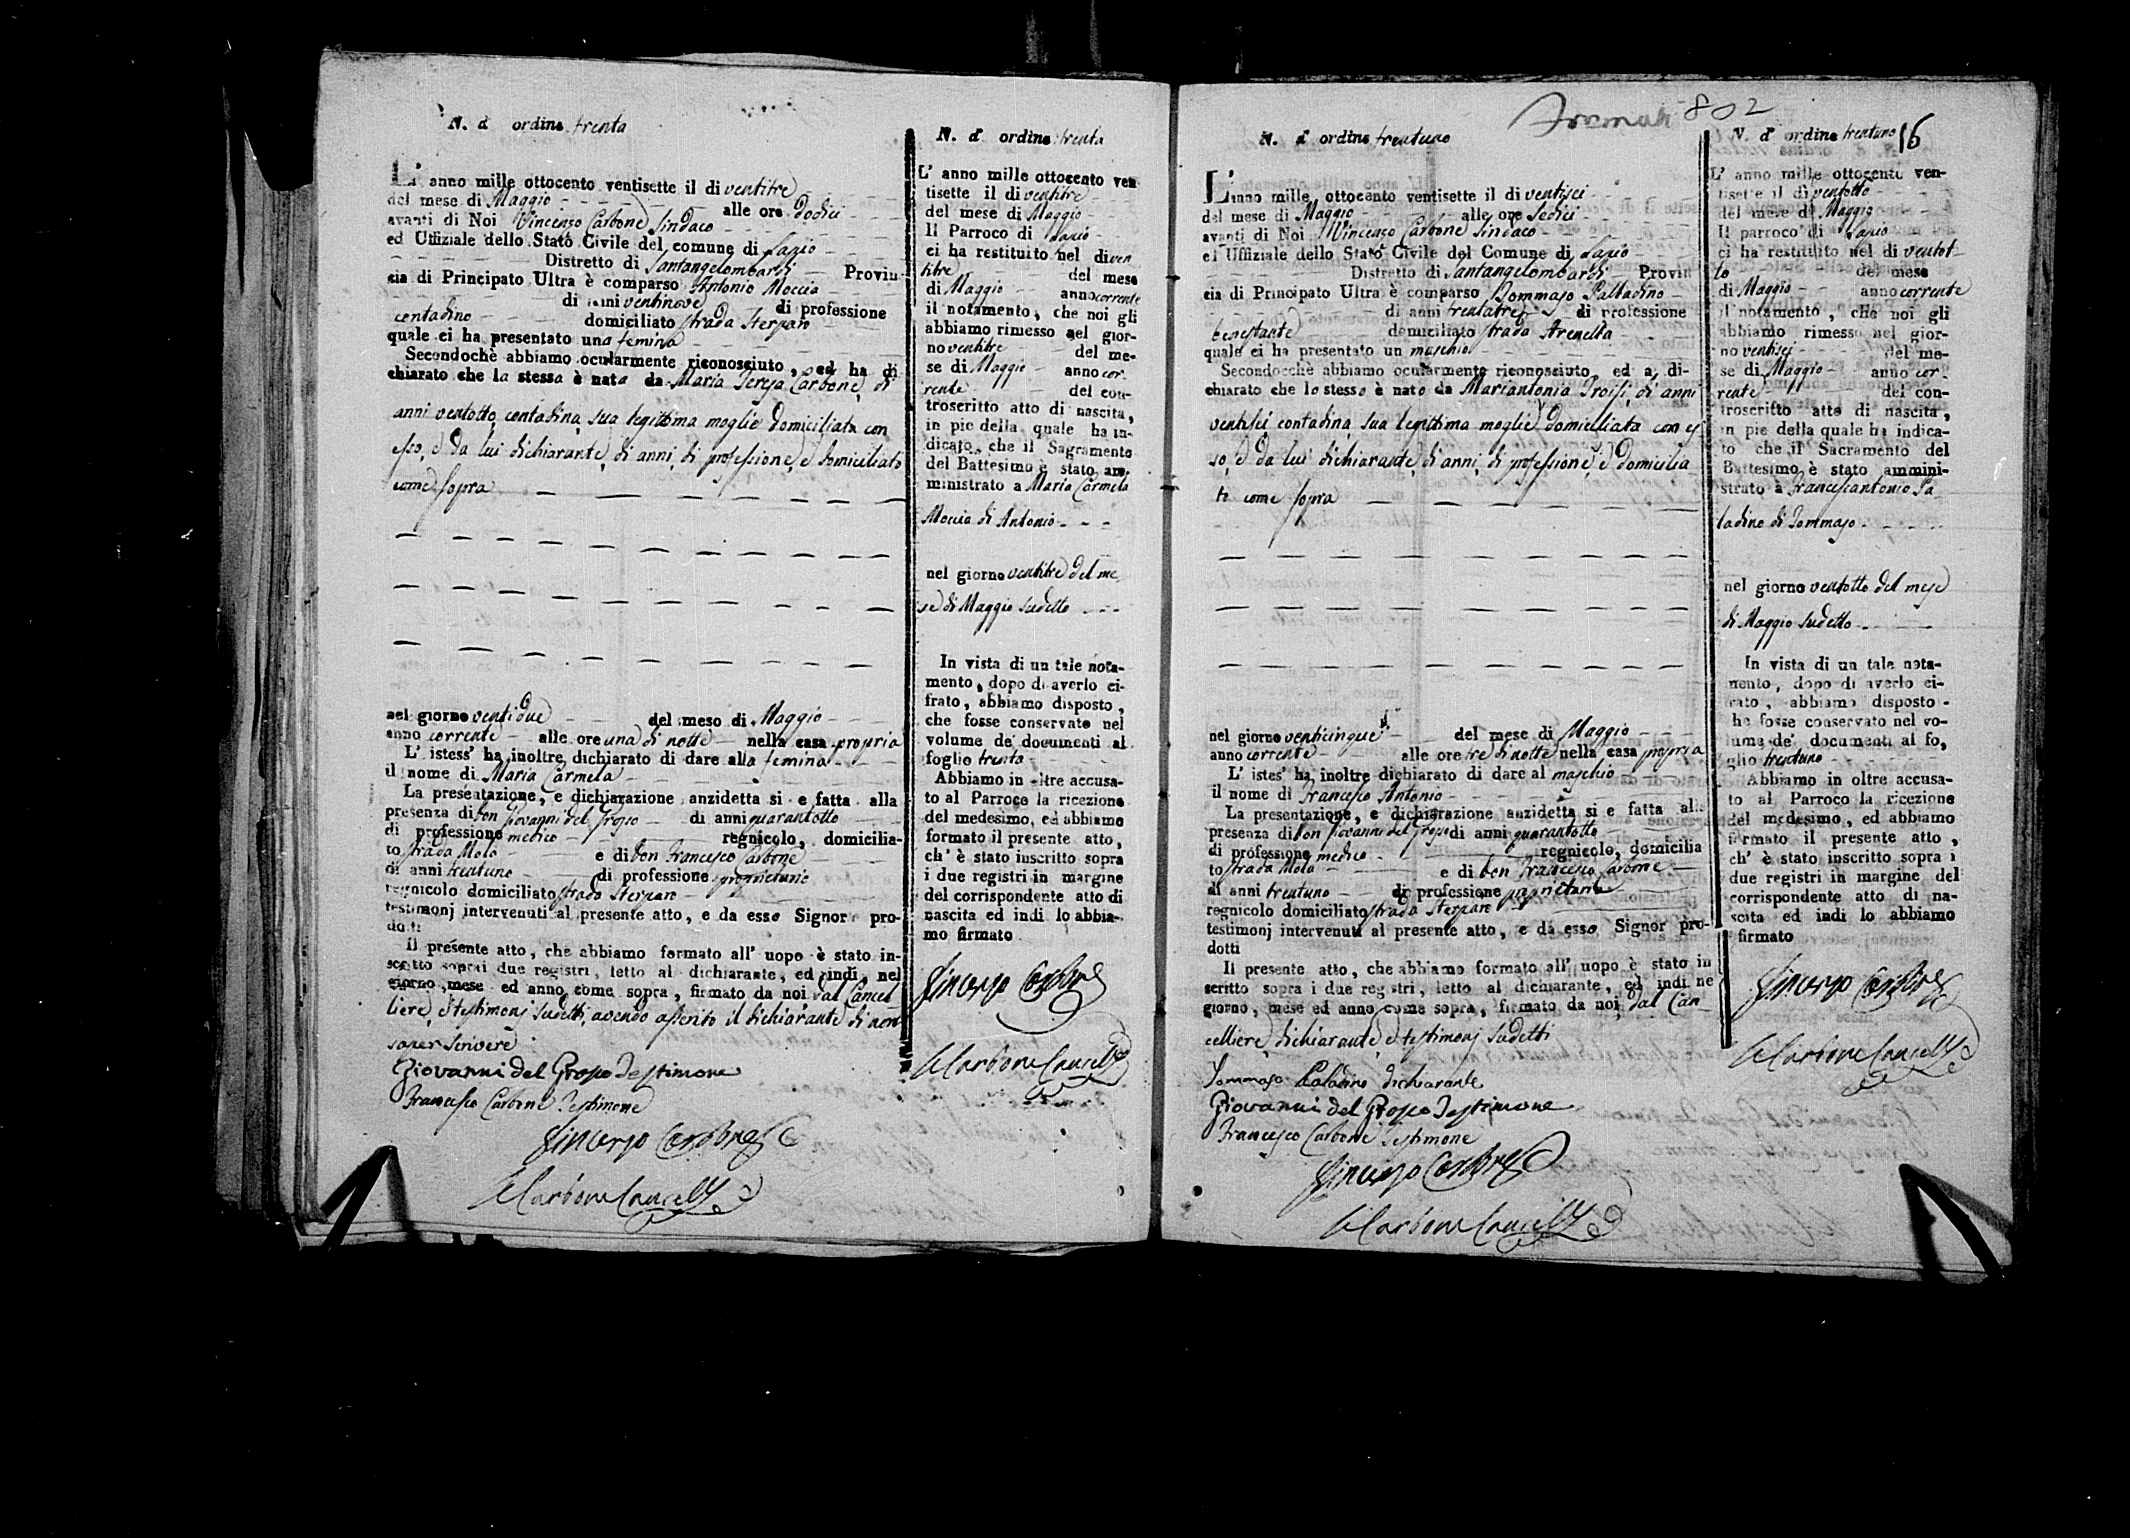 N. d' ordine trenta
L' anno mille ottocento ventisette il di ventitre
del mese di Maggio alle ore dodici
avanti di Noi Vincenzo Carbone Sindaco
ed Uffiziale dello Stato Civile del comune di Lapio
Distretto di Santangelombardi Provin-
cia di Principato Ultra è comparso Antonio Moccia
di anni ventinove di professione
contadino domiciliato strada Sterparo
quale ci ha presentato una femina
Secondochè abbiamo ocularmente riconosciuto, ed ha di
chiarato che la stessa è nata da Maria Teresa Carbone, di
anni ventotto contadina, sua legittima moglie domiciliata con
esso, e da lui dichiarante, di anni, di professione, e domiciliato
come sopra
nel giorno ventidue del mese di Maggio
anno corrente alle ore una di notte nella casa propria
L' istess' ha inoltre dichiarato di dare alla femina
il nome di Maria Carmela
La presentazione, e dichiarazione anzidetta si e fatta alla
presenza di Don Giovanni del Grosso di anni quarantotto
di professione medico regnicolo, domicilia-
to strada Molo e di Don Francesco Carbone
di anni trentuno di professione proprietario
regnicolo domiciliato strada Sterparo
testimonj intervenuti al presente atto, e da esso Signor pro-
dotti
Il presente atto, che abbiamo formato all' uopo è stato in-
scritto sopra i due registri, letto al dichiarante, ed indi, nel
giorno, mese ed anno come sopra, firmato da noi dal Cancel
liere, e testimonj sudetti, avendo asserito il dichiarante di non
saper scrivere
Giovanni del Grosso Testimone
Francesco Carbone Testimone
Vincenzo Carbone
Carbone Cancell.
N. d' ordine trenta
L' anno mille ottocento ven
tisette il di ventitre
del mese di Maggio
Il Parroco di Lapio
ci ha restituito nel di ven
titre del mese
di Maggio anno corrente
il notamento, che noi gli
abbiamo rimesso nel gior-
no ventitre del me-
se di Maggio anno cor-
rente del con-
troscritto atto di nascita,
in pie della quale ha in-
dicato che il Sagramento
del Battesimo è stato am-
ministrato a Maria Carmela
Moccia di Antonio
nel giorno ventitre del me
se di Maggio sudetto
In vista di un tale nota-
mento, dopo di averlo ci-
frato, abbiamo disposto,
che fosse conservato nel
volume de' documenti al
foglio trenta
Abbiamo in oltre accusa-
to al Parroco la ricezione
del medesimo, ed abbiamo
formato il presente atto,
ch' è stato inscritto sopra
i due registri in margine
del corrispondente atto di
nascita ed indi lo abbia-
mo firmato
Vincenzo Carbone
Carbone Cancell.
802
16
N. d' ordine trentuno
L' anno mille ottocento ventisette il di ventisei
del mese di Maggio alle ore sedici
avanti di Noi Vincenzo Carbone Sindaco
ed Uffiziale dello Stato Civile del Comune di Lapio
Distretto di Santangelombardi Provin
cia di Principato Ultra è comparso Tommaso Palladino
di anni trentatre di professione
benestante domiciliato strada Arenella
quale ci ha presentato un maschio
Secondocchè abbiamo ocularmente riconosciuto, ed a di-
chiarato che lo stesso è nato da Mariantonia Troisi, di anni
ventisei contadina, sua legittima moglie domiciliata con es
so, e da lui dichiarante, di anni, di professione, e domicilia
ti come sopra
nel giorno venticinque del mese di Maggio
anno corrente alle ore tre di notte nella casa propria
L' istes' ha inoltre dichiarato di dare al maschio
il nome di Francesco Antonio
La presentazione, e dichiarazione anzidetta si e fatta alla
presenza di Don Giovanni del Grosso di anni quarantotto
di professione medico regnicolo, domicilia
to strada Molo e di Don Francesco Carbone
di anni trentuno di professione proprietario
regnicolo domiciliato strada Sterparo
testimonj intervenuti al presente atto, e da esso Signor pro-
dotti
Il presente atto, che abbiamo formato all' uopo è stato in
scritto sopra i due registri, letto al dichiarante, ed indi ne
giorno, mese ed anno come sopra, firmato da noi dal Can-
celliere, dichiarante, e testimonj sudetti
Tommaso Paladino dichiarante
Giovanni del Grosso Testimone
Francesco Carbone Testimone
Vincenzo Carbone
Carbone Cancell.
N. d' ordine trentuno
L' anno mille ottocento ven-
tisette il di ventotto
del mese di Maggio
Il parroco di Lapio
ci ha restituito nel di ventot-
to del mese
di Maggio anno corrente
il notamento, che noi gli
abbiamo rimesso nel gior-
no ventisei del me-
se di Maggio anno cor-
rente del con-
troscritto atto di nascita,
in pie della quale ha indica-
to che il Sacramento del
Battesimo è stato ammini-
strato a Francescantonio Pa
ladino di Tommaso
nel giorno ventotto del mese
di Maggio sudetto
In vista di un tale nota-
mento, dopo di averlo ci-
frato, abbiamo disposto
che fosse conservato nel vo-
lume de' documenti al fo,
glio trentuno
Abbiamo in oltre accusa-
to al Parroco la ricezione
del medesimo, ed abbiamo
formato il presente atto,
ch' è stato inscritto sopra i
due registri in margine del
corrispondente atto di na-
scita ed indi lo abbiamo
firmato
Vincenzo Carbone
Carbone Cancell.